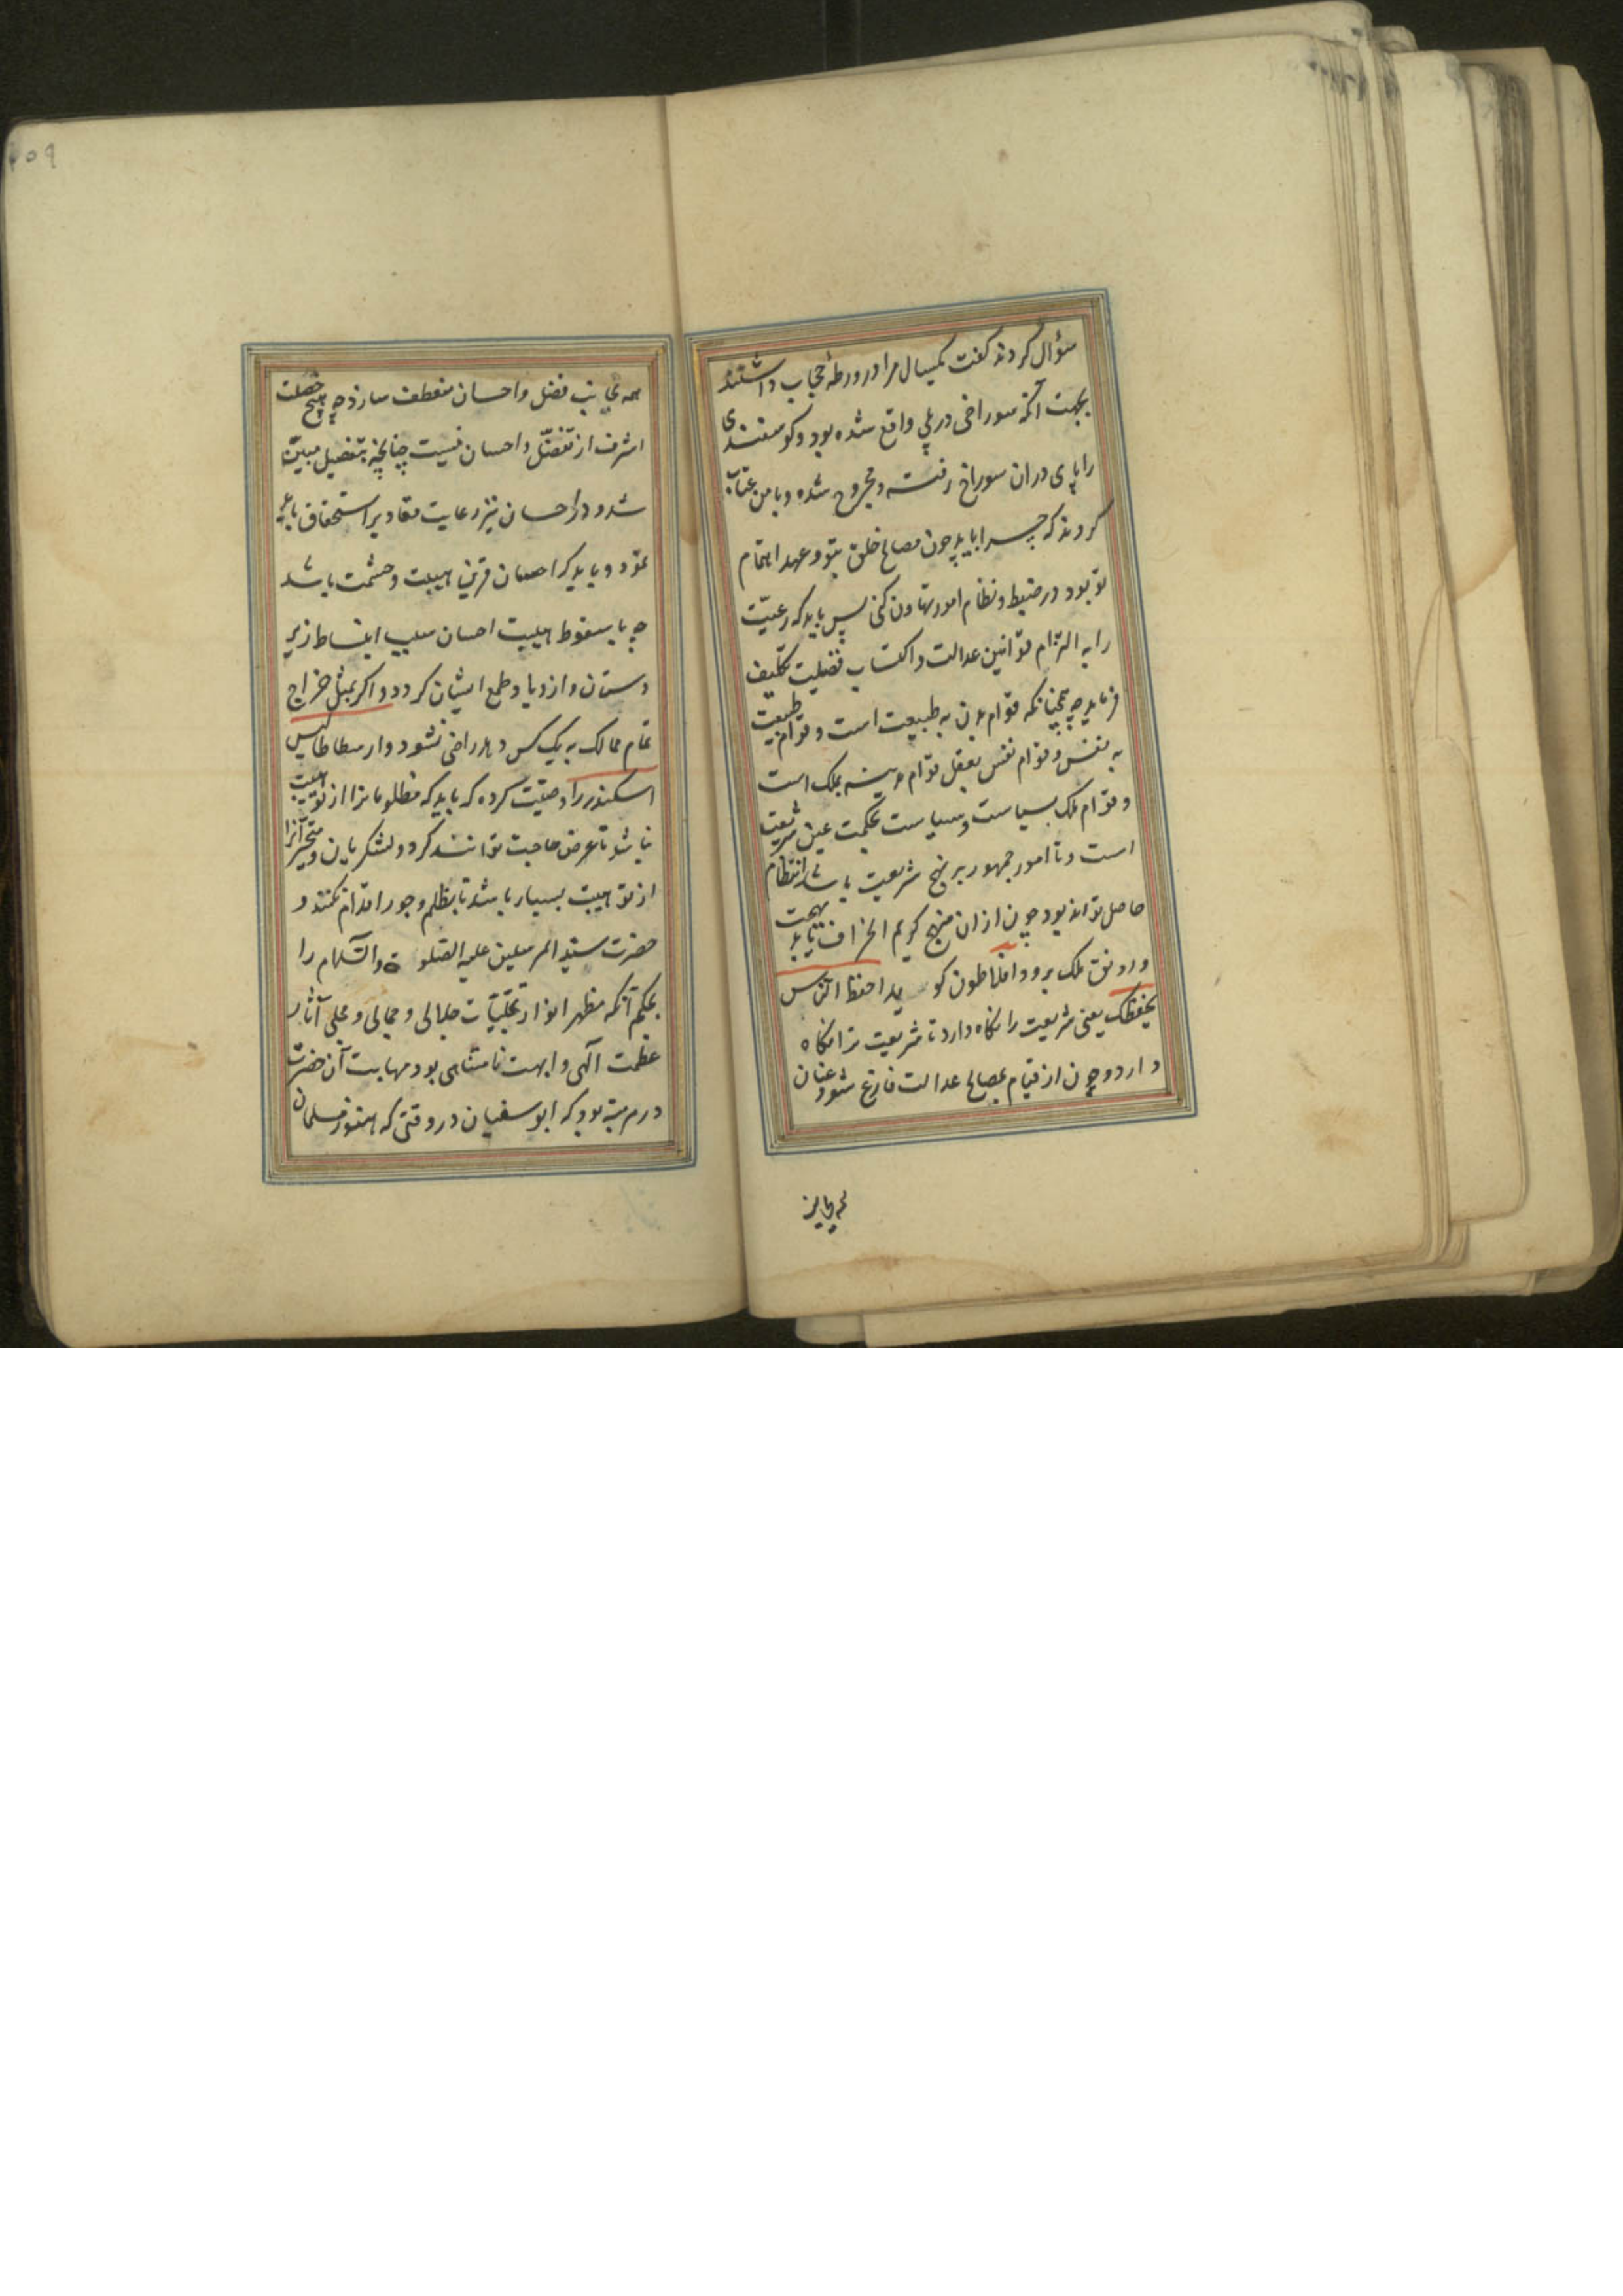 سؤال کردند کفت یکسال مرا در ورطهٔ حجاب داشتند
بجهت آنکه سوراخی در پلی واقع شده بود و کوسفندی
را پای دران سوراخ رفته و مجروح شده و با من عتاب
کردند که چرا باید چون مصالح خلق بتو و عهد اهتمام
تو بود در ضبط و نظام امور تهاون کنی پس باید که رعیّت
را به التزام قوانین عدالت و اکتساب فضیلت تکلیف
فرماید چه همچنانکه قوام بدن به طبیعت است و قوام طبیعت
به نفس و قوام نفس بعقل قوام مدینه بملک است
و قوام ملک بسیاست و سیاست بحکمت عین شریعت
است و تا امور جمهور بر نهج شریعت باشد انتظام
حاصل تواند بود چون ازان منهج کریم انحراف یابد بهجت
و رونق ملک برود افلاطون کوید احفظ النّاس
یحفظک یعنی شریعت را نکاه دارد تا شریعت ترا نکاه
دارد و چون از قیام بمصالح عدالت فارغ شود عنان
همه بجانب
۴۵۹
همه بجانب فضل و احسان منعطف سازد چه هیچ خصلت
اشرف از تفضّل و احسان نیست چنانچه بتفصیل مبیّن
شد و در احسان نیز رعایت مقادیر استحقاق باید
نمود و باید که احسان قرین هیبت و حشمت باشد
چه با سقوط هیبت احسان سبب انبساط زیر
دستان و ازدیاد طمع ایشان کردد و اکر بمثل خراج
تمام ممالک به یک کس دهد راضی نشود و ارسطاطالیس
اسکندر را وصیّت کرده که باید که مظلومانرا از تو هیبت
نباشد تا عرض حاجت توانند کرد و لشکریان و متجبّرانرا
از تو هیبت بسیار باشد تا بظلم و جور اقدام نکنند و
حضرت سیّد المرسلین علیه الصّلوة والسّلام را
بحکم آنکه مظهر انوار تجلّیات جلالی و جمالی و مجلی آثار
عظمت الهی و ابهت نامتناهی بود مهابت آن حضرت
در مرتبهٔ بود که ابو سفیان در وقتی که هنوز مسلمان